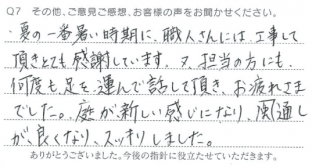 Q7 その他、ご意見ご感想、お客様の声をお聞かせください。
・夏の一番暑い時期に、職人さんには、工事して
頂きとても感謝しています。又、担当の方にも、
何度も足を運んで話して頂き、お疲れさま
でした。庭が新しい感じになり、風通し
が、良くなり、スッキリしました。
ありがとうございました。今後の指針に役立たせていただきます。